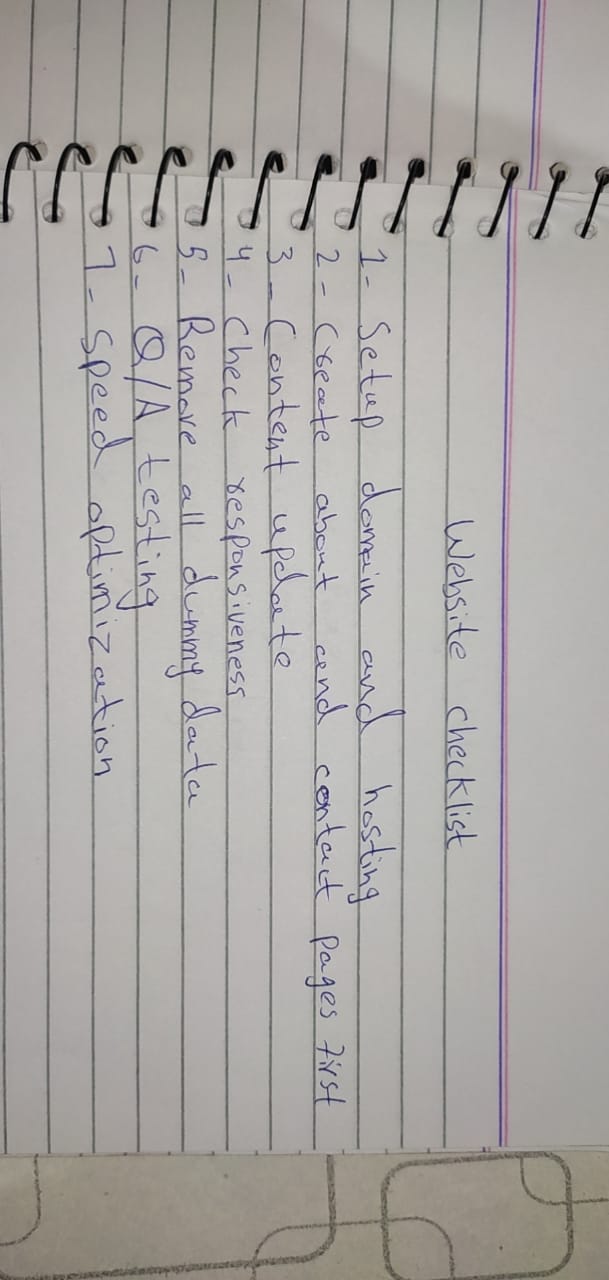 Website checklist
1- Setup domain and hosting
2- Create about and contact pages first
3- Content update
4- Check responsiveness
5- Remove all dummy data
6- Q/A testing
7- Speed optimization